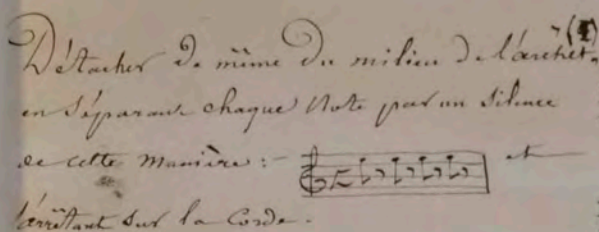 Détacher de même du milieu de l'archet. (1)
en séparant chaque Note par un silence
de cette manière : - et
l'arrêtant sur la Corde.